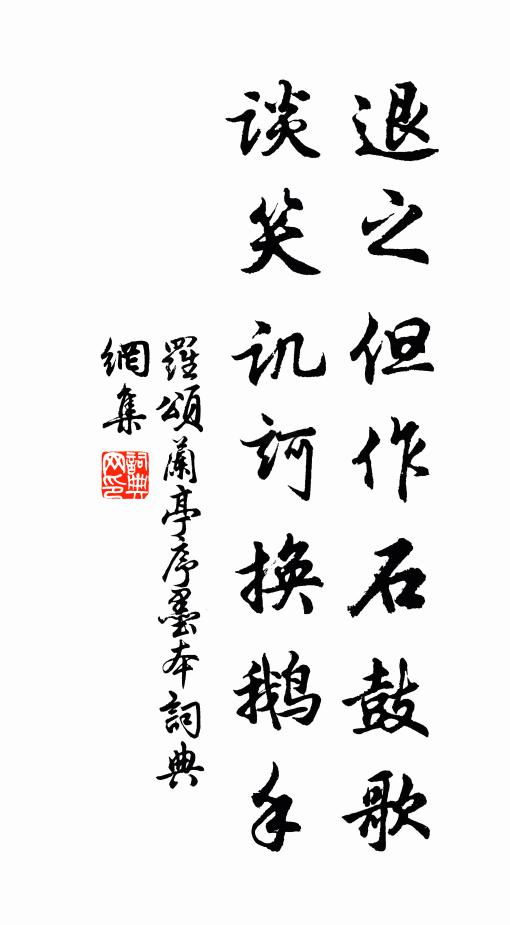 退之但作石鼓歌
谈笑讥诃换鹅手
羅頌蘭亭序墨本詞典
網集
詞典
网印